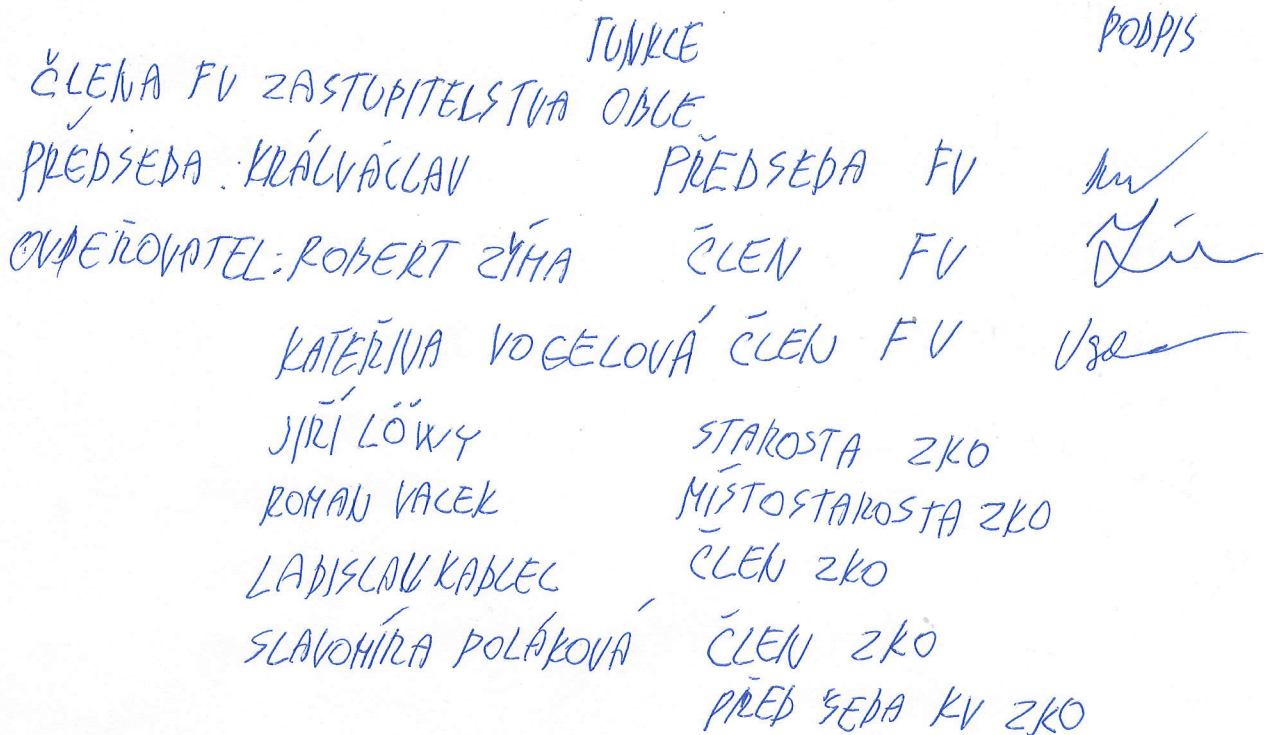 FUNKCE PODPIS
ČLENA FV ZASTUPITELSTVA OBCE
PŘEDSEDA: KRÁL VÁCLAV PŘEDSEDA FV
OVĚEŘOVATEL: ROBERT ZÝMA ČLEN FV
KATEŘINA VOGELOVÁ ČLEN FV
JIŘÍ LÖWY STAROSTA ZKO
ROMAN VACEK MÍSTOSTAROSTA ZKO
LADISLAV KADLEC ČLEN ZKO
SLAVOMÍRA POLÁKOVÁ ČLEN ZKO
PŘEDSEDA KV ZKO